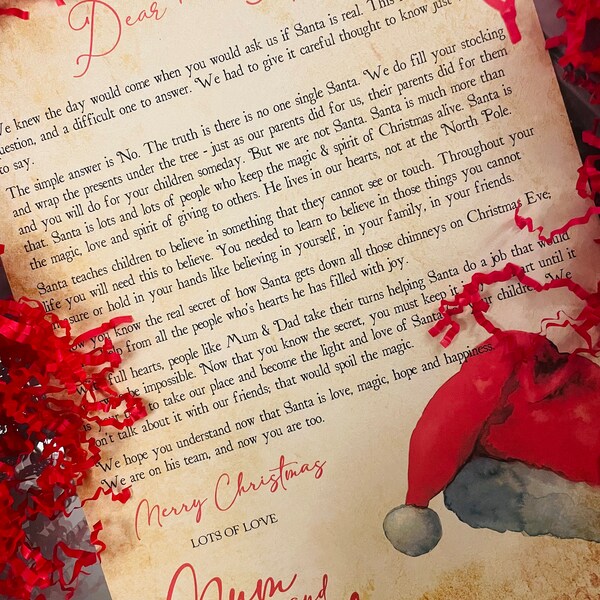 Dear
We knew the day would come when you would ask us if Santa is real. This
question, and a difficult one to answer. We had to give it careful thought to know just
to say.
The simple answer is No. The truth is there is no one single Santa. We do fill your stocking
and wrap the presents under the tree - just as our parents did for us, their parents did for them
and you will do for your children someday. But we are not Santa. Santa is much more than
that. Santa is lots and lots of people who keep the magic & spirit of Christmas alive. Santa is
the magic, love and spirit of giving to others. He lives in our hearts, not at the North Pole.
Santa teaches children to believe in something that they cannot see or touch. Throughout your
life you will need this to believe. You needed to learn to believe in those things you cannot
sure or hold in your hands like believing in yourself, in your family, in your friends.
you know the real secret of how Santa gets down all those chimneys on Christmas Eve;
help from all the people who's hearts he has filled with joy.
full hearts, people like Mum & Dad take their turns helping Santa do a job that would
be impossible. Now that you know the secret, you must keep it heart until it
is to take our place and become the light and love of Santa children. We
don't talk about it with our friends; that would spoil the magic.
We hope you understand now that Santa is love, magic, hope and happiness.
We are on his team, and now you are too.
Merry Christmas
LOTS OF LOVE
Mum
and